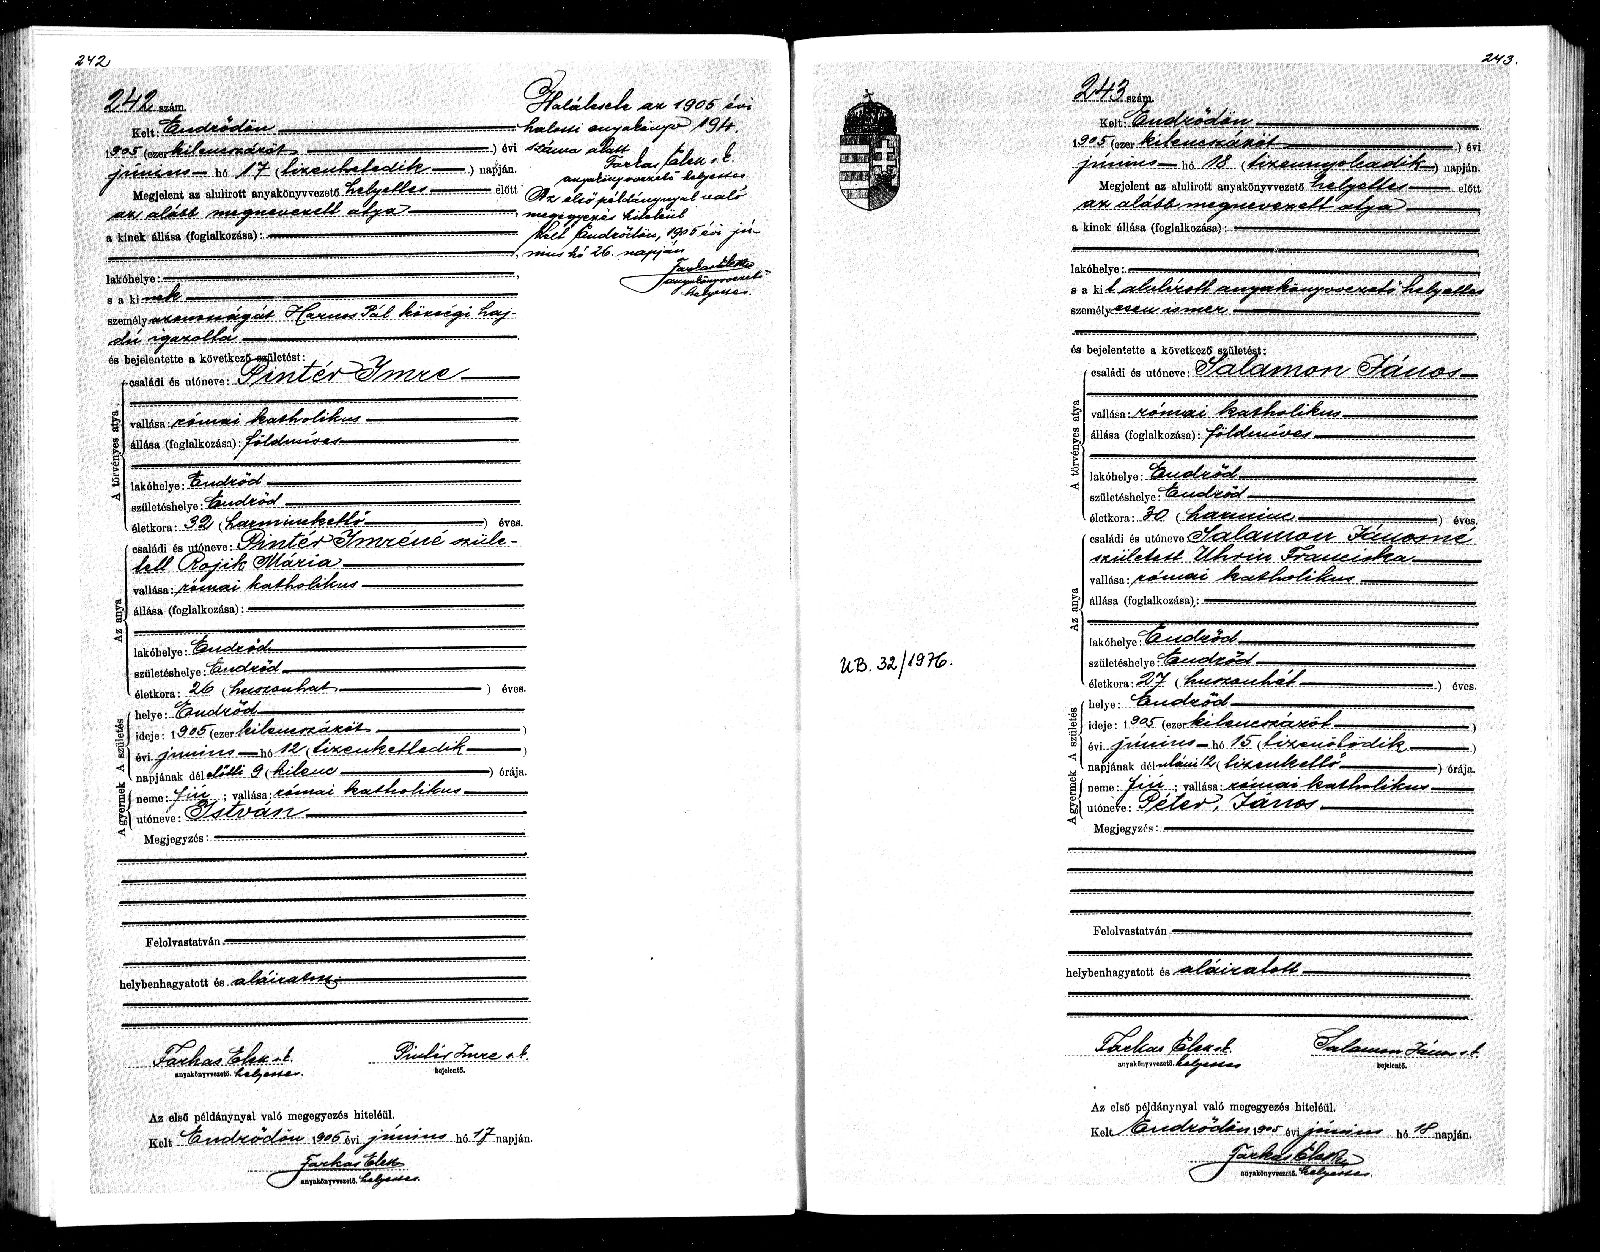 242
242 szám.
Kelt: Endrődön
1905 (ezer kilencszázöt ) évi
június hó 17 (tizenhetedik ) napján.
Megjelent az alulirott anyakönyvvezető helyettes előtt
az alább megnevezett atya
a kinek állása (foglalkozása):
lakóhelye:
s a ki nek
személyazonosságát Harnos Pál községi haj-
dú igazolta
és bejelentette a következő születést:
A törvényes atya
családi és utóneve: Pintér Imre
vallása: római katholikus
állása (foglalkozása): földmíves
lakóhelye: Endrőd
születéshelye: Endrőd
életkora: 32 (harminckettő ) éves.
Az anya
családi és utóneve: Pintér Imréné szüle-
tett Rojik Mária
vallása: római katholikus
állása (foglalkozása):
lakóhelye: Endrőd
születéshelye: Endrőd
életkora: 26 (huszonhat ) éves.
A születés
helye: Endrőd
ideje: 1905 (ezer kilencszázöt )
évi június hó 12 (tizenkettedik )
napjának dél előtti 9 (kilenc ) órája.
A gyermek
neme: fiú ; vallása: római katholikus
utóneve: István
Megjegyzés:
Felolvastatván
helybenhagyatott és aláíratott
Farkas Elek s.k. Pintér Imre s.k.
anyakönyvvezető. helyettes bejelentő.
Az első példánynyal való megegyezés hiteléül.
Kelt Endrődön 1905 évi június hó 17 napján.
Farkas Elek
anyakönyvvezető. helyettes.
Halálesete az 1905 évi
halotti anyakönyv 194.
száma alatt
Farkas Elek s.k.
anyakönyvvezető helyettes
Az első példánynyal való
megegyezés hiteléül
Kelt Endrődön, 1905 évi jú-
nius hó 26. napján
Farkas Elek
anyakönyvvezető
helyettes.
UB. 32/1976.
243.
243 szám.
Kelt: Endrődön
1905 (ezer kilencszázöt ) évi
június hó 18 (tizennyolcadik ) napján.
Megjelent az alulirott anyakönyvvezető helyettes előtt
az alább megnevezett atya
a kinek állása (foglalkozása):
lakóhelye:
s a ki t alulírott anyakönyvvezető helyettes
személyesen ismer
és bejelentette a következő születést:
A törvényes atya
családi és utóneve: Salamon János
vallása: római katholikus
állása (foglalkozása): földmíves
lakóhelye: Endrőd
születéshelye: Endrőd
életkora: 30 (harminc ) éves.
Az anya
családi és utóneve: Salamon Jánosné
született Uhrin Franciska
vallása: római katholikus
állása (foglalkozása):
lakóhelye: Endrőd
születéshelye: Endrőd
életkora: 27 (huszonhét ) éves.
A születés
helye: Endrőd
ideje: 1905 (ezer kilencszázöt )
évi június hó 15 (tizenötödik )
napjának dél utáni 12 (tizenkettő ) órája.
A gyermek
neme: fiú ; vallása: római katholikus
utóneve: Péter, János
Megjegyzés:
Felolvastatván
helybenhagyatott és aláíratott
Farkas Elek s.k. Salamon János s.k.
anyakönyvvezető. helyettes bejelentő.
Az első példánynyal való megegyezés hiteléül.
Kelt Endrődön 1905 évi június hó 18 napján.
Farkas Elek
anyakönyvvezető. helyettes.